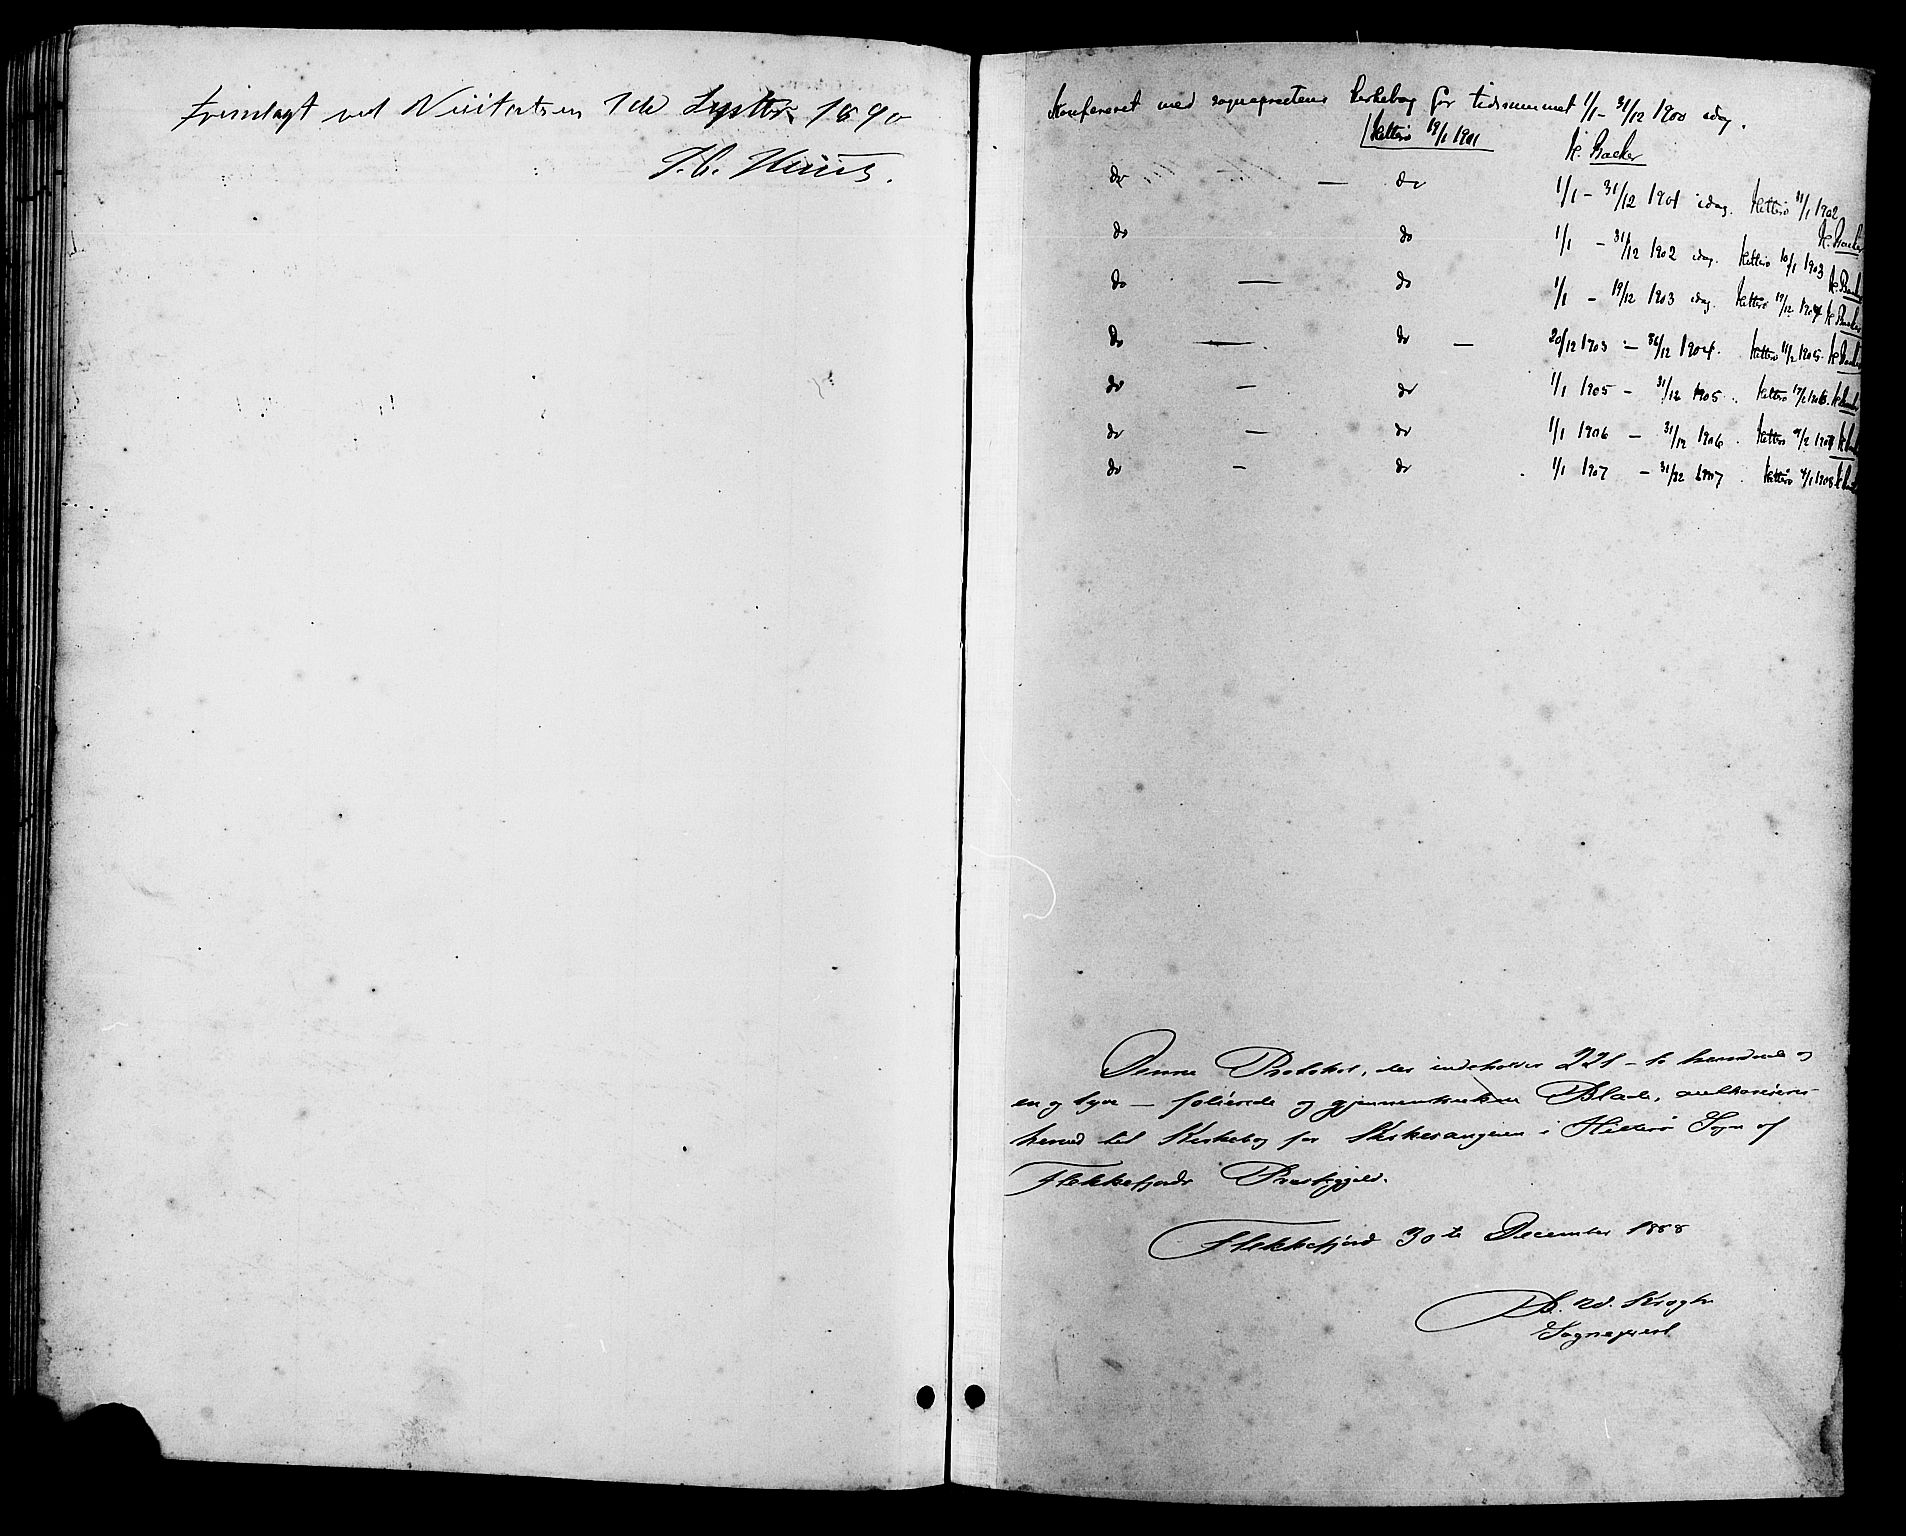 Fremlagt ved Visitatsen 1de Septbr 1890
J. C. Heuch.
Konfereret med sogneprestens kirkebog for tidsrummet 1/1 - 31/12 1900 idag.
Hitterø 19/1 1901
K. Backer
do — do 1/1 - 31/12 1901 idag. Hitterø 31/1 1902
K. Backer
do do 1/1 - 31/12 1902 idag. Hitterø 10/1 1903 K. Backer
do — do 1/1 - 19/12 1903 idag. Hitterø 19/12 K. Backer
do — do — 20/12 1903 - 1904. Hitterø 1905 K. Backer
do — do 1/1 1905 - 31/12 1905. Hitterø K. Backer
do — do 1/1 1906 - 31/12 1906. Hitterø K. Backer
do — do 1/1 1907 - 31/12 1907. Hitterø 4/1 1908
Denne Protokol, der indeholder 221 - to hundrede og
en og tyve - folierede og gjennemtrukne Blade, authoriseres
herved til Kirkebog for Kirkesangeren i Hitterø Sogn af
Flekkefjords Præstegjeld.
Flekkefjord 30te December 1888
Krogh
Sogneprest